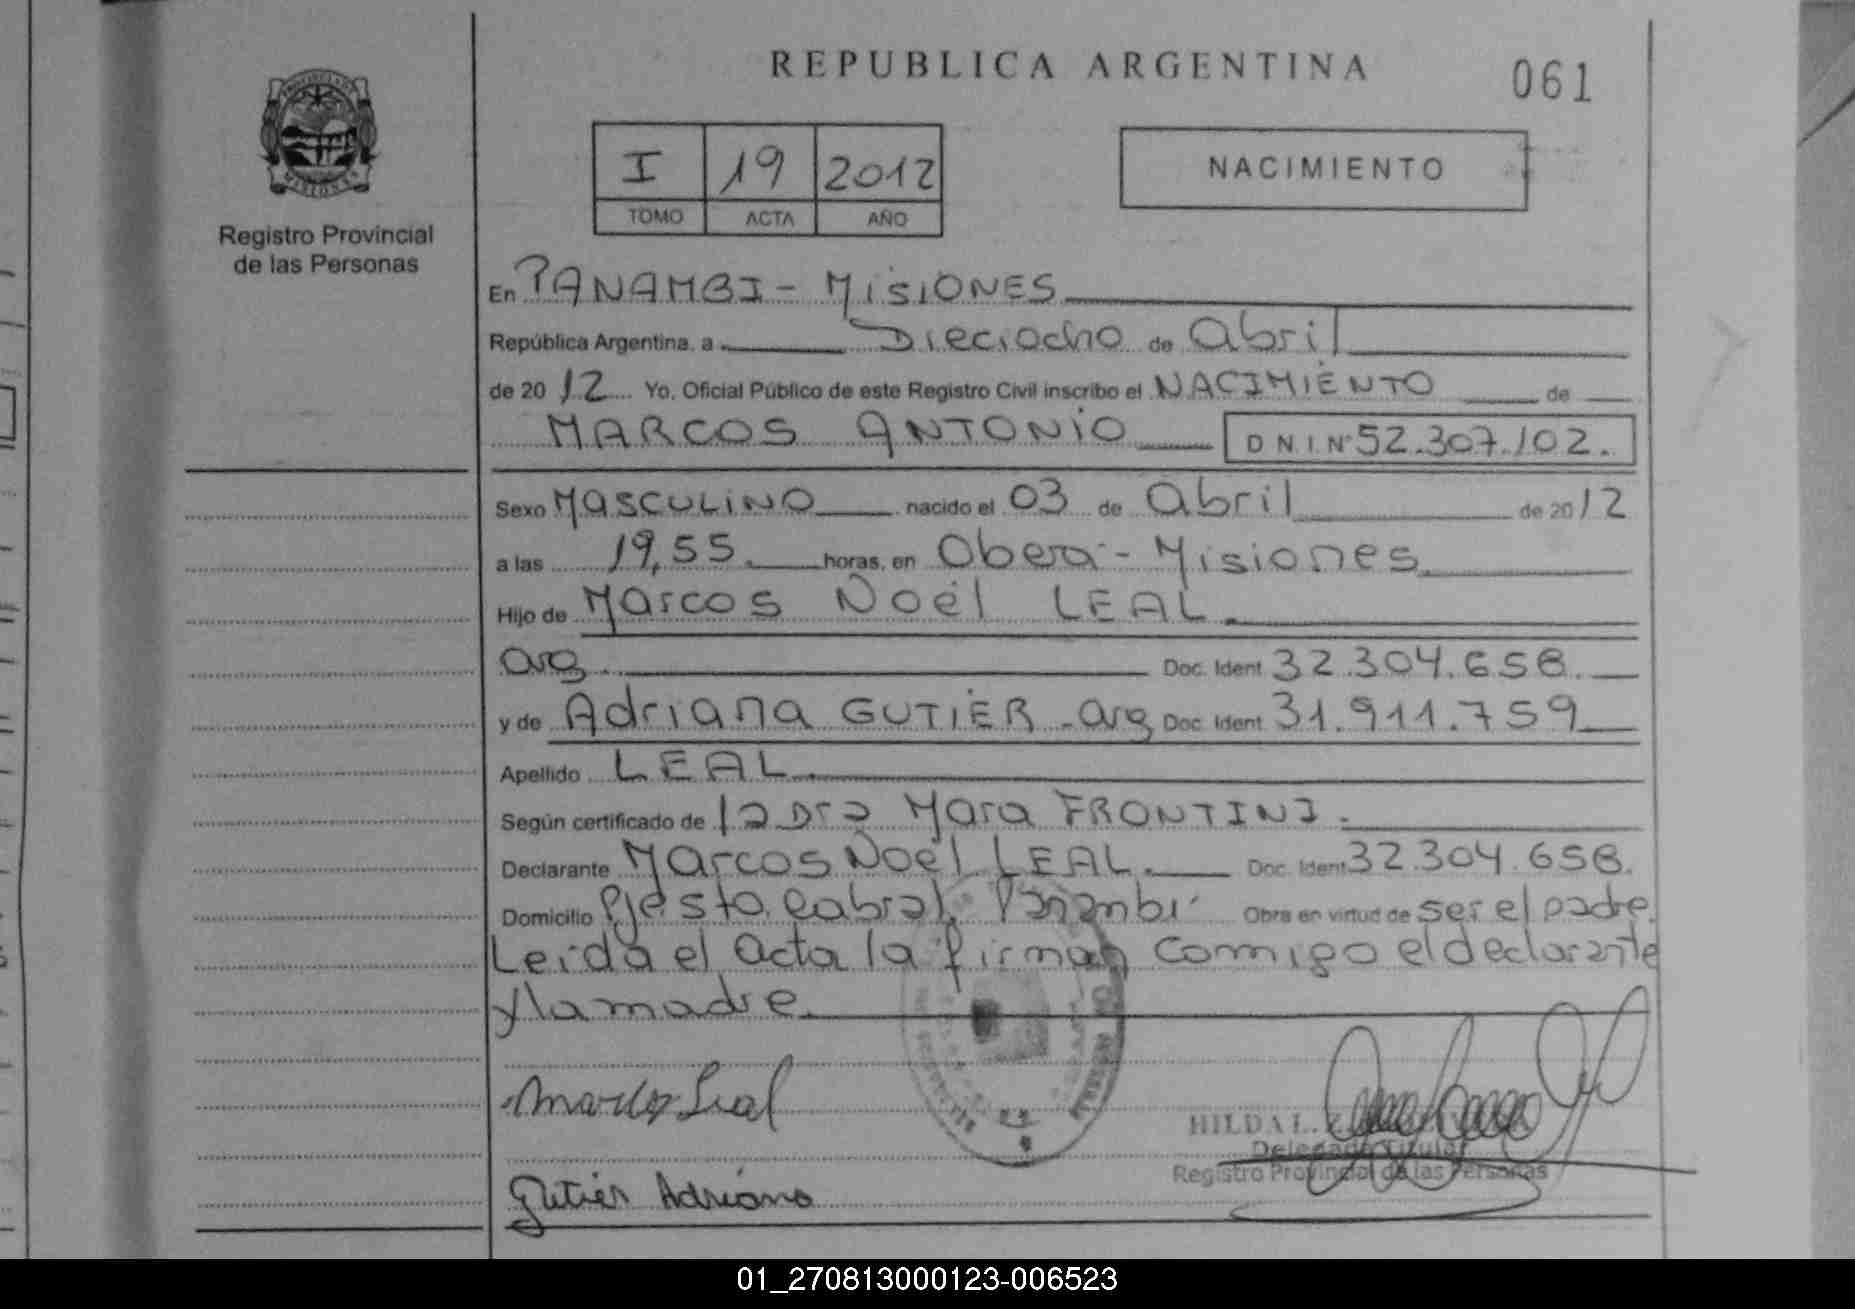 REPUBLICA ARGENTINA
061
PROVINCIA DE
MISIONES
Registro Provincial
de las Personas
I 19 2012
TOMO ACTA AÑO
NACIMIENTO
En PANAMBI - MISIONES
República Argentina, a Dieciocho de Abril
de 2012 Yo, Oficial Público de este Registro Civil inscribo el NACIMIENTO de
MARCOS ANTONIO D N.I.Nº 52.307.102.
Sexo MASCULINO nacido el 03 de Abril de 2012
a las 19,55 horas, en Oberá - Misiones
Hijo de Marcos Noél LEAL
arg. Doc. Ident 32.304.658.
y de Adriana GUTIÉR - arg Doc. Ident 31.911.759
Apellido LEAL
Según certificado de la Dra Mara FRONTINI.
Declarante Marcos Noél LEAL. Doc. Ident 32.304.658.
Domicilio Pje Sto. Cabral, Panambí Obra en virtud de ser el padre.
Leida el acta la firman conmigo el declarante
y la madre.
Marcos Leal
HILDA
Delegado Titular
Registro Provincial de las Personas
Gutiér Adriana
01_270813000123-006523